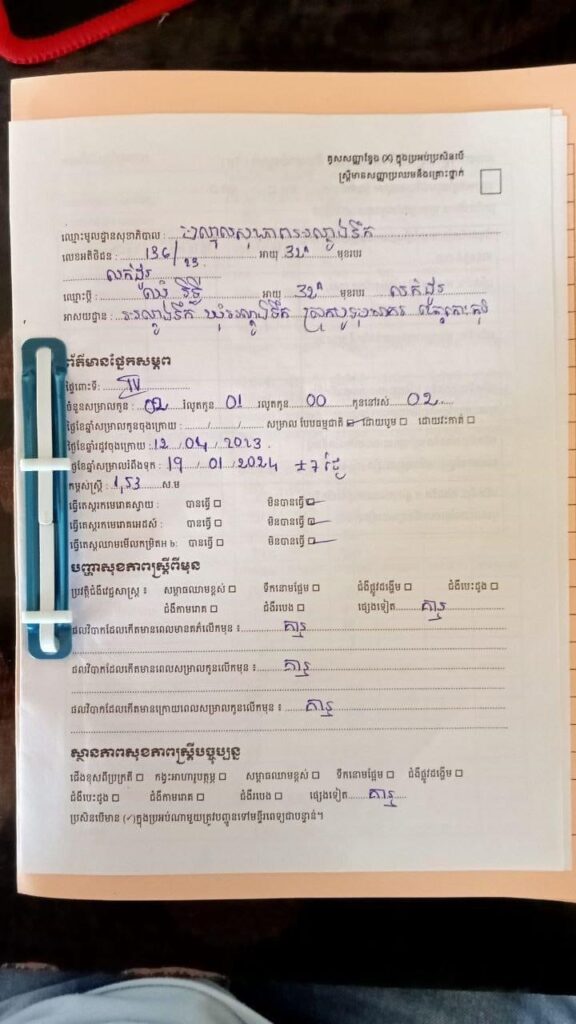 គូសសញ្ញាខ្វែង (X) ក្នុងប្រអប់ប្រសិនបើ
ស្ត្រីមានសញ្ញាប្រឈមនឹងគ្រោះថ្នាក់
ឈ្មោះមូលដ្ឋានសុខាភិបាល :
លេខអតិថិជន : 136/23 អាយុ 32ឆ្នាំ មុខរបរ
លក់ដូរ
ឈ្មោះប្តី : ឈុំ រិទ្ធី អាយុ 32ឆ្នាំ មុខរបរ លក់ដូរ
អាសយដ្ឋាន :
ព័ត៌មានផ្នែកសម្ភព
ផ្ទៃពោះទី: IV
ចំនួនសម្រាលកូន : 02 រំលូតកូន 01 រលូតកូន 00 កូននៅរស់ 02
ថ្ងៃខែឆ្នាំសម្រាលកូនចុងក្រោយ : / / សម្រាល បែបធម្មជាតិ ដោយបូម ដោយវះកាត់
ថ្ងៃខែឆ្នាំរដូវចុងក្រោយ : 12 / 04 / 2023
ថ្ងៃខែឆ្នាំសម្រាលរំពឹងទុក : 19 / 01 / 2024 ±7 ថ្ងៃ
កម្ពស់ស្ត្រី : 1,53 ស.ម
ធ្វើតេស្តរកមេរោគស្វាយ : បានធ្វើ មិនបានធ្វើ
ធ្វើតេស្តរកមេរោគអេដស៍ : បានធ្វើ មិនបានធ្វើ
ធ្វើតេស្តឈាមមើលកម្រិតH b: បានធ្វើ មិនបានធ្វើ
បញ្ហាសុខភាពស្ត្រីពីមុន
ប្រវត្តិជំងឺវេជ្ជសាស្ត្រ ៖ សម្ពាធឈាមខ្ពស់ ទឹកនោមផ្អែម ជំងឺផ្លូវដង្ហើម ជំងឺបេះដូង
ជំងឺកាមរោគ ជំងឺរបេង ផ្សេងទៀត គ្មាន
ផលវិបាកដែលកើតមានពេលមានគភ៌លើកមុន : គ្មាន
ផលវិបាកដែលកើតមានពេលសម្រាលកូនលើកមុន ៖ គ្មាន
ផលវិបាកដែលកើតមានក្រោយពេលសម្រាលកូនលើកមុន ៖ គ្មាន
ស្ថានភាពសុខភាពស្ត្រីបច្ចុប្បន្ន
ជើងខុសពីប្រក្រតី កង្វះអាហារូបត្ថម្ភ សម្ពាធឈាមខ្ពស់ ទឹកនោមផ្អែម ជំងឺផ្លូវដង្ហើម
ជំងឺបេះដូង ជំងឺកាមរោគ ជំងឺរបេង ផ្សេងទៀត គ្មាន
ប្រសិនបើមាន (✓)ក្នុងប្រអប់ណាមួយត្រូវបញ្ជូនទៅមន្ទីរពេទ្យជាបន្ទាន់។